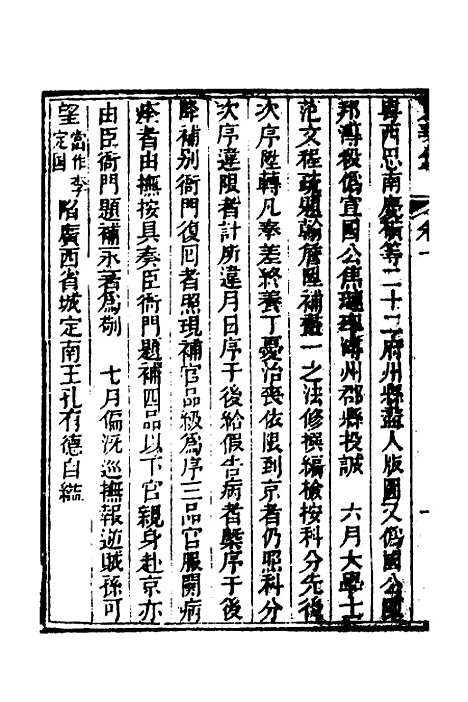 粵西思南慶遠等二十二府州縣盡入版圖又偽國公
邦溥役偽宜國公焦璉率潯州郡縣投誠　六月大學士
范文程疏題翰詹陞補畫一之法修撰編檢按科分先後
次序陞轉凡奉差終養丁憂治喪依限到京者仍照科分
次序違限者計所違月日序于後給假告病者槩序于後
降補別衙門復囘者照現補官品級爲序三品官服闋病
痊者由撫按具奏臣衙門題補四品以下官親身赴京亦
由臣衙門題補永著爲制　七月偏沅巡撫報逆賊孫可
望當作李定國陷廣西省城定南王孔有德自縊